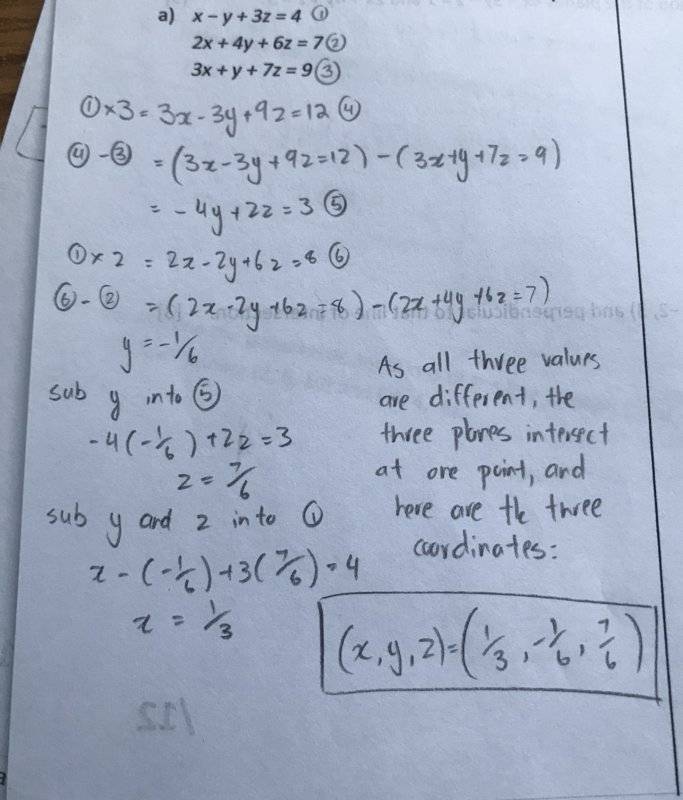 a) x – y + 3z = 4 ①
2x + 4y + 6z = 7 ②
3x + y + 7z = 9 ③
① × 3 = 3x - 3y + 9z = 12 ④
④ - ③ = (3x - 3y + 9z = 12) - (3x + y + 7z = 9)
= - 4y + 2z = 3 ⑤
① × 2 = 2x - 2y + 6z = 8 ⑥
⑥ - ② = (2x - 2y + 6z = 8) - (2x + 4y + 6z = 7)
y = -1/6
sub y into ⑤
-4(-1/6) + 2z = 3
z = 7/6
sub y and z into ①
x - (-1/6) + 3(7/6) = 4
x = 1/3
As all three values
are different, the
three planes intersect
at one point, and
here are the three
coordinates:
(x, y, z) = (1/3, -1/6, 7/6)
/12